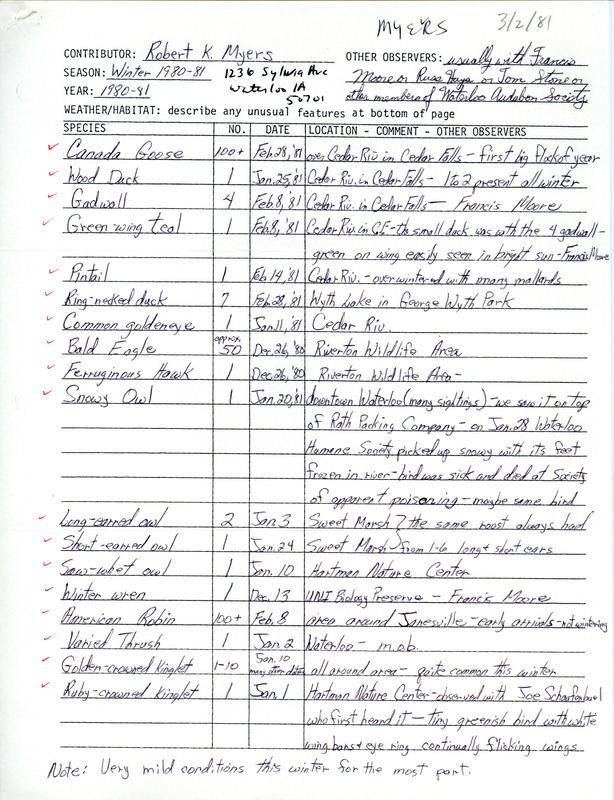 MyERS 3/2/81
CONTRIBUTOR: Robert K. Myers OTHER OBSERVERS: usually with Francis
SEASON: Winter 1980-81 1236 Sylvia Ave Moore or Russ Hays or Tom Stone or
YEAR: 1980-81 Waterloo IA other members of Waterloo Audubon Society
50701
WEATHER/HABITAT: describe any unusual features at bottom of page
SPECIES NO. DATE LOCATION - COMMENT - OTHER OBSERVERS
Canada Goose 100+ Feb.28,'81 over Cedar Riv. in Cedar Falls - first big flock of year
Wood Duck 1 Jan.25,'81 Cedar Riv. in Cedar Falls - 1 to 2 present all winter
Gadwall 4 Feb.8,'81 Cedar Riv. in Cedar Falls - Francis Moore
Green-wing teal 1 Feb.8,'81 Cedar Riv. in C.F. - the small duck was with the 4 gadwall -
green on wing easily seen in bright sun - Francis Moore
Pintail 1 Feb 14,'81 Cedar Riv. - overwintered with many mallards
Ring-necked duck 7 Feb.28,'81 Wyth Lake in George Wyth Park
Common goldeneye 1 Jan.11,'81 Cedar Riv.
Bald Eagle approx. 50 Dec.26,'80 Riverton Wildlife Area
Ferruginous Hawk 1 Dec.26,'80 Riverton Wildlife Area -
Snowy Owl 1 Jan.20,'81 downtown Waterloo (many sightings) - we saw it on top
of Rath Packing Company - on Jan.28 Waterloo
Humane Society picked up snowy with its feet
frozen in river - bird was sick and died at Society
of apparent poisoning - maybe same bird
Long-earred owl 2 Jan.3 Sweet Marsh } the same roost always had
Short-earred owl 1 Jan.24 Sweet Marsh } from 1-6 long & short ears
Saw-whet owl 1 Jan.10 Hartman Nature Center
Winter wren 1 Dec.13 UNI Biology Preserve - Francis Moore
American Robin 100+ Feb.8 area around Janesville - early arrivals - not wintering
Varied Thrush 1 Jan.2 Waterloo - m.o.b.
Golden-crowned Kinglet 1-10 Jan.10 many other dates all around area - quite common this winter
Ruby-crowned Kinglet 1 Jan.1 Hartman Nature Center - observed with Joe
who first heard it - tiny greenish bird with white
wing bars & eye ring continually flicking wings
Note: Very mild conditions this winter for the most part.